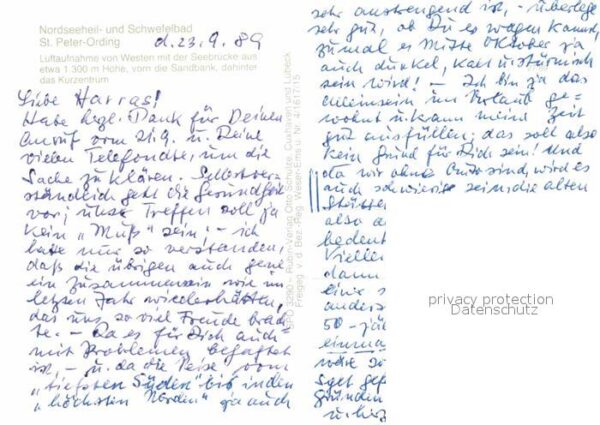 Nordseeheil- und Schwefelbad
St. Peter-Ording
d. 23.9.89
Luftaufnahme von Westen mit der Seebrücke aus
etwa 1 300 m Höhe, vorn die Sandbank, dahinter
das Kurzentrum
Liebe Harras!
Habe herzl. Dank für Deinen
Anruf vom 21.9. u. Deine
vielen Telefondte, um die
Sache zu klären. Selbstver-
ständlich geht die Gesundheit
vor; unser Treffen soll ja
kein „Muß" sein; - ich
habe nur so verstanden,
daß die übrigen auch gerne
ein Zusammensein wie im
letzten Jahr wiederholten,
das uns so viel Freude brach-
te. - Da es für Dich auch
mit Problemen behaftet
ist, - u. da die Reise vom
„tiefsten Süden" bis in den
„höchsten Norden" ja auch
Rubin-Verlag Otto Schulze, Cuxhaven und Lübeck
Freigeg. v. d. Bez.-Reg. Weser-Ems u. Nr. 4/1617/15
sehr anstrengend ist, - überlege
sehr gut, ob Du es wagen kannst,
zumal es Mitte Oktober ja
auch dunkel, kalt u. stürmisch
sein wird! - Ich bin ja das
Alleinsein im Urlaub ge-
wohnt u. kann meine Zeit
gut ausfüllen; das soll also
kein Grund für Dich sein! Und
da wir ohne Auto sind, wird es
auch schwierig sein, die alten
Stätten
also a
bedeut
Vielle
dann
eine s
anders
50-jä
einma
wäre so
sagt gef
gründen
u. herz
privacy protection
Datenschutz